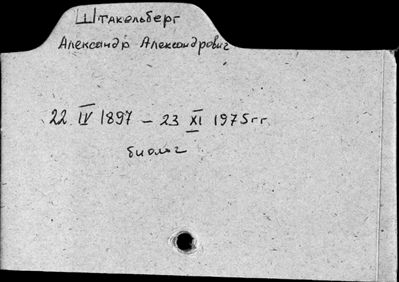 Штакельберг
Александр Александрович
22 IV 1897 – 23 XI 1975 гг.
биолог